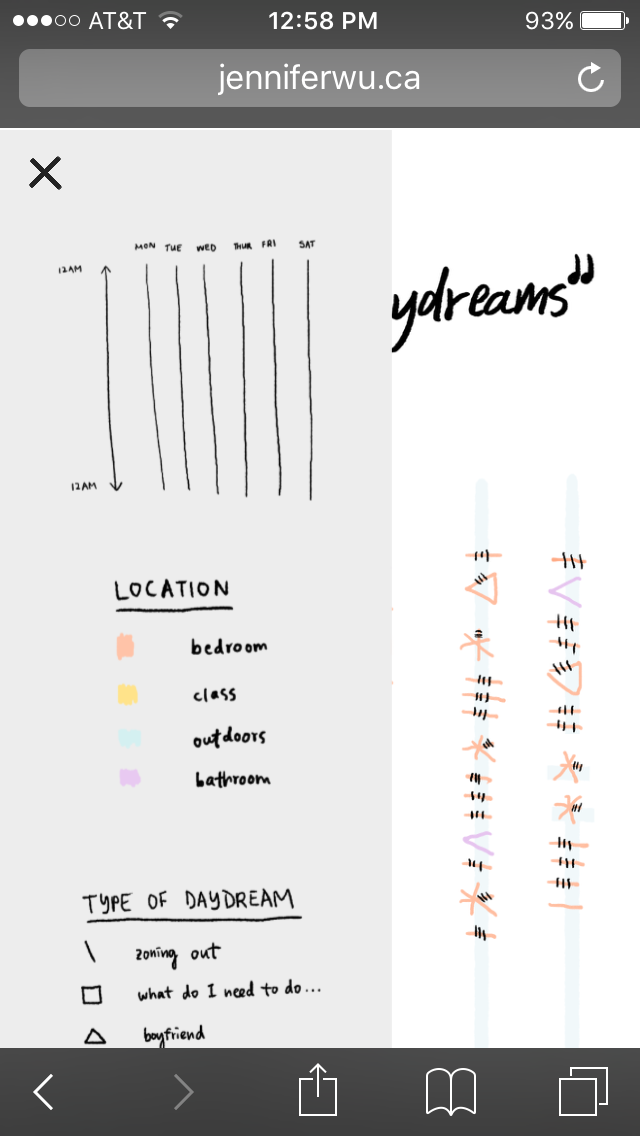 AT&T 12:58 PM 93%
jenniferwu.ca
MON TUE WED THUR FRI SAT
12AM
ydreams"
12AM
LOCATION
bedroom
class
outdoors
bathroom
TYPE OF DAYDREAM
zoning out
what do I need to do...
boyfriend